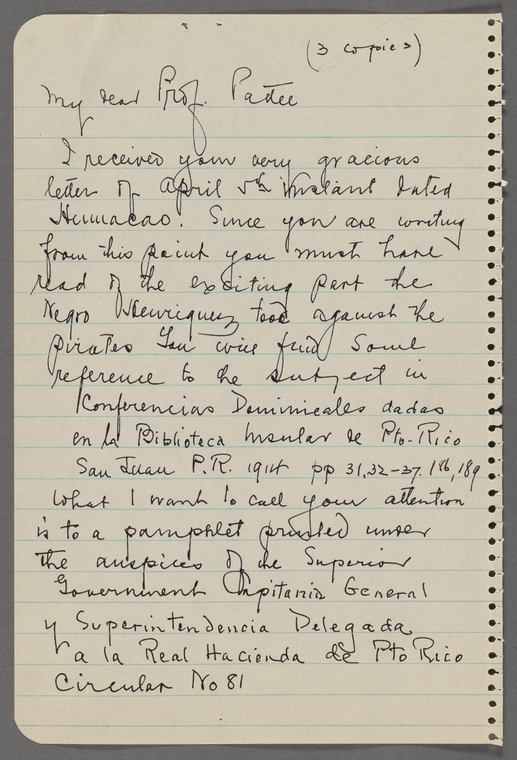 (3 copies)
My dear Prof. Pattee
I received your very gracious
letter of April 5th instant dated
Humacao. Since you are writing
from this point you must have
read of the exciting part the
Negro Henriquez took against the
pirates You will find some
reference to the subject in
Conferencias Dominicales dadas
en la Biblioteca Insular de Pto-Rico
San Juan P.R. 1914 pp 31,32-37. 186, 189
What I want to call your attention
is to a pamphlet printed under
the auspices of the Superior
Government Capitania General
y Superintendencia Delegada
a la Real Hacienda de Pto Rico
Circular No 81